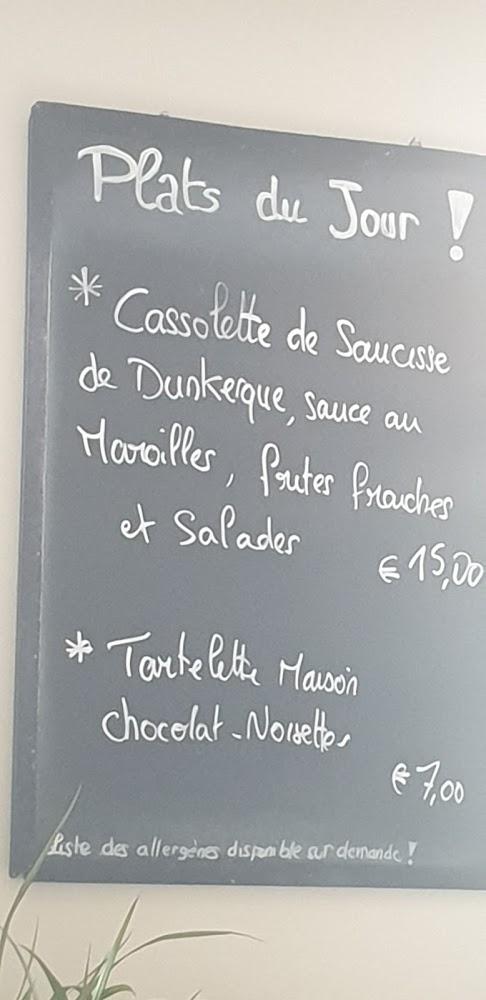 Plats du Jour !
* Cassolette de Saucisse
de Dunkerque, sauce au
Maroilles, frites fraiches
et Salades
€ 15,00
* Tartelette Maison
chocolat - Noisettes
€ 7,00
Liste des allergènes disponible sur demande !